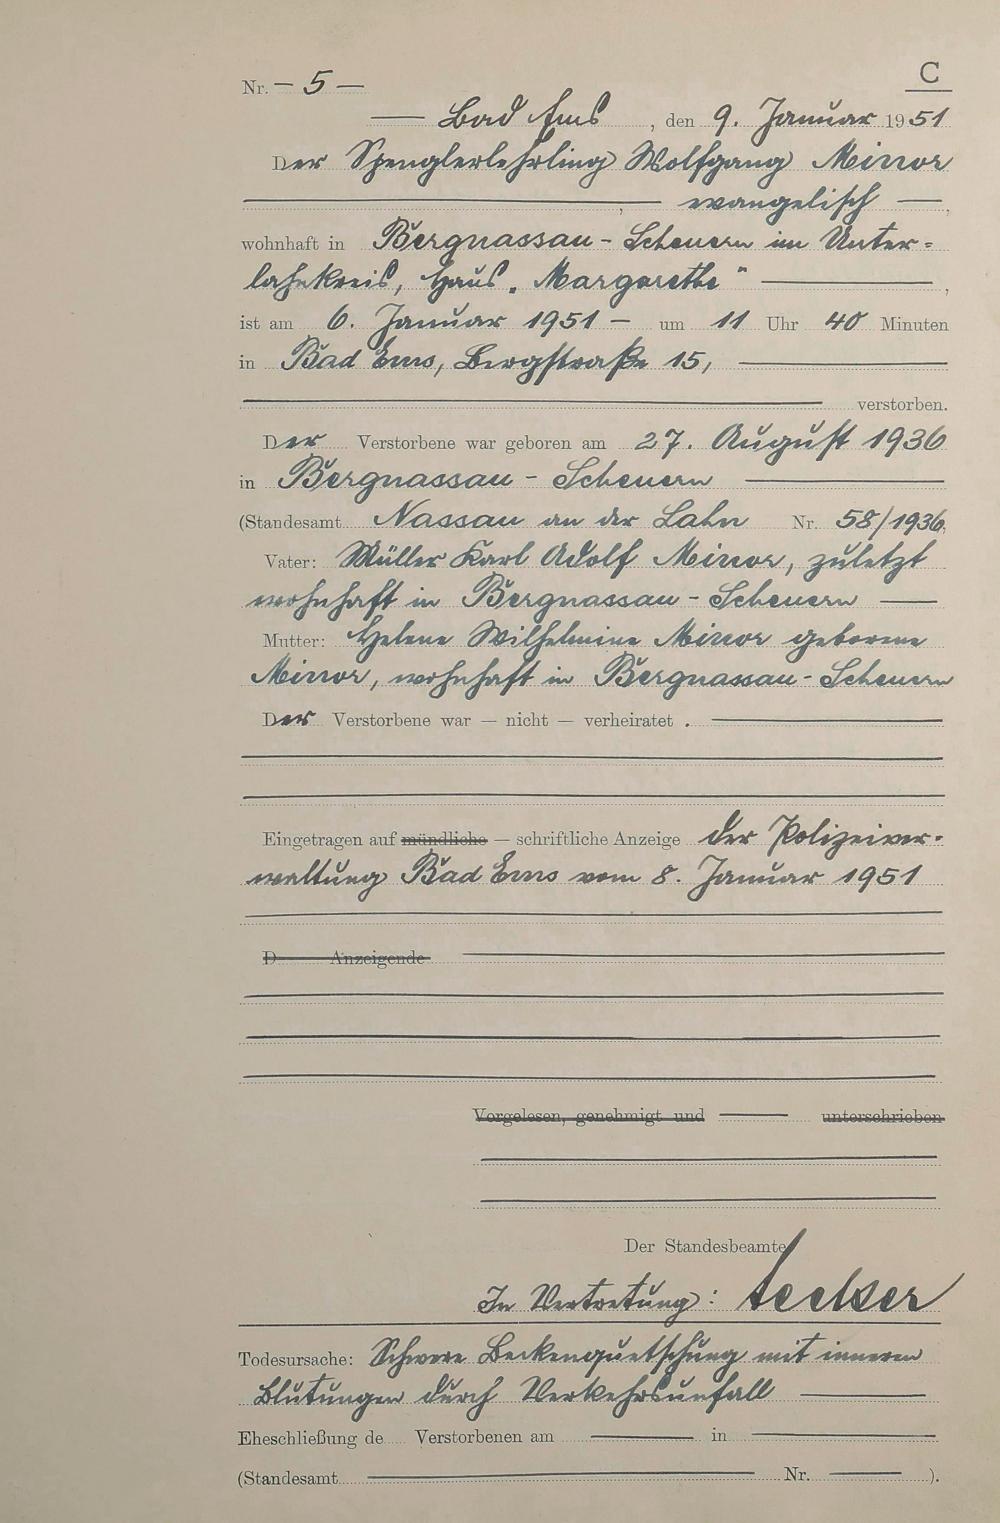 C
Nr. — 5 —
— Bad Ems, den 9. Januar 1951
Der Spenglerlehrling Wolfgang Minor
—, — evangelisch —,
wohnhaft in Bergnassau - Scheuern im Unter=
lahnkreis, Haus „Margarethe" —,
ist am 6. Januar 1951 — um 11 Uhr 40 Minuten
in Bad Ems, Bergstraße 15, —
— verstorben.
Der Verstorbene war geboren am 27. August 1936
in Bergnassau - Scheuern —
(Standesamt Nassau an der Lahn Nr. 58/1936.
Vater: Müller Karl Adolf Minor, zuletzt
wohnhaft in Bergnassau - Scheuern —
Mutter: Helene Wilhelmine Minor geborene
Minor, wohnhaft in Bergnassau - Scheuern
Der Verstorbene war — nicht — verheiratet. —
Eingetragen auf mündliche — schriftliche Anzeige der Polizeiver=
waltung Bad Ems vom 8. Januar 1951
D Anzeigende —
Vorgelesen, genehmigt und — unterschrieben
Der Standesbeamte
In Vertretung:
Todesursache: Schwere Beckenquetschung mit inneren
Blutungen durch Verkehrsunfall —
Eheschließung de Verstorbenen am — in —
(Standesamt — Nr. — ).